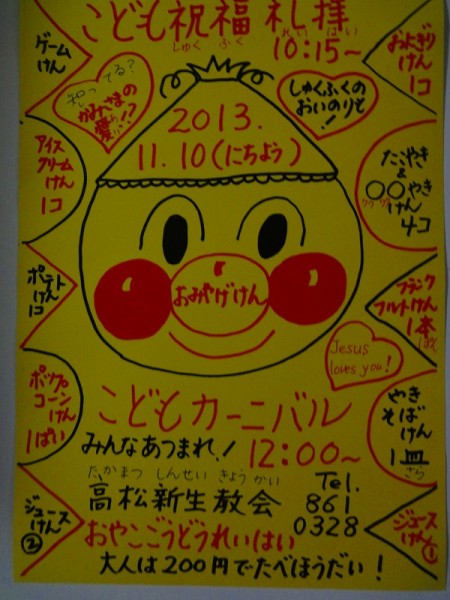 こども祝福礼拝
しゅくふく れいはい
10:15～
ゲーム
けん
おにぎり
けん
1コ
知ってる？
かみさまの
愛！？
しゅくふくの
おいのりも
！
2013.
11.10(にちよう)
アイス
クリーム
けん
1コ
たこやき
&
○○やき
けん
4コ
ポテト
けん
1コ
おみやげけん
フランク
フルトけん
1本
Jesus
loves you!
ポップ
コーン
けん
1ぱい
こどもカーニバル
みんなあつまれ！ 12:00～
やき
そばけん
1皿
さら
たかまつ しんせい きょうかい
高松新生教会
Tel.
861
0328
ジュース
けん
②
ジュース
けん①
おやこごうどうれいはい
大人は200円でたべほうだい！